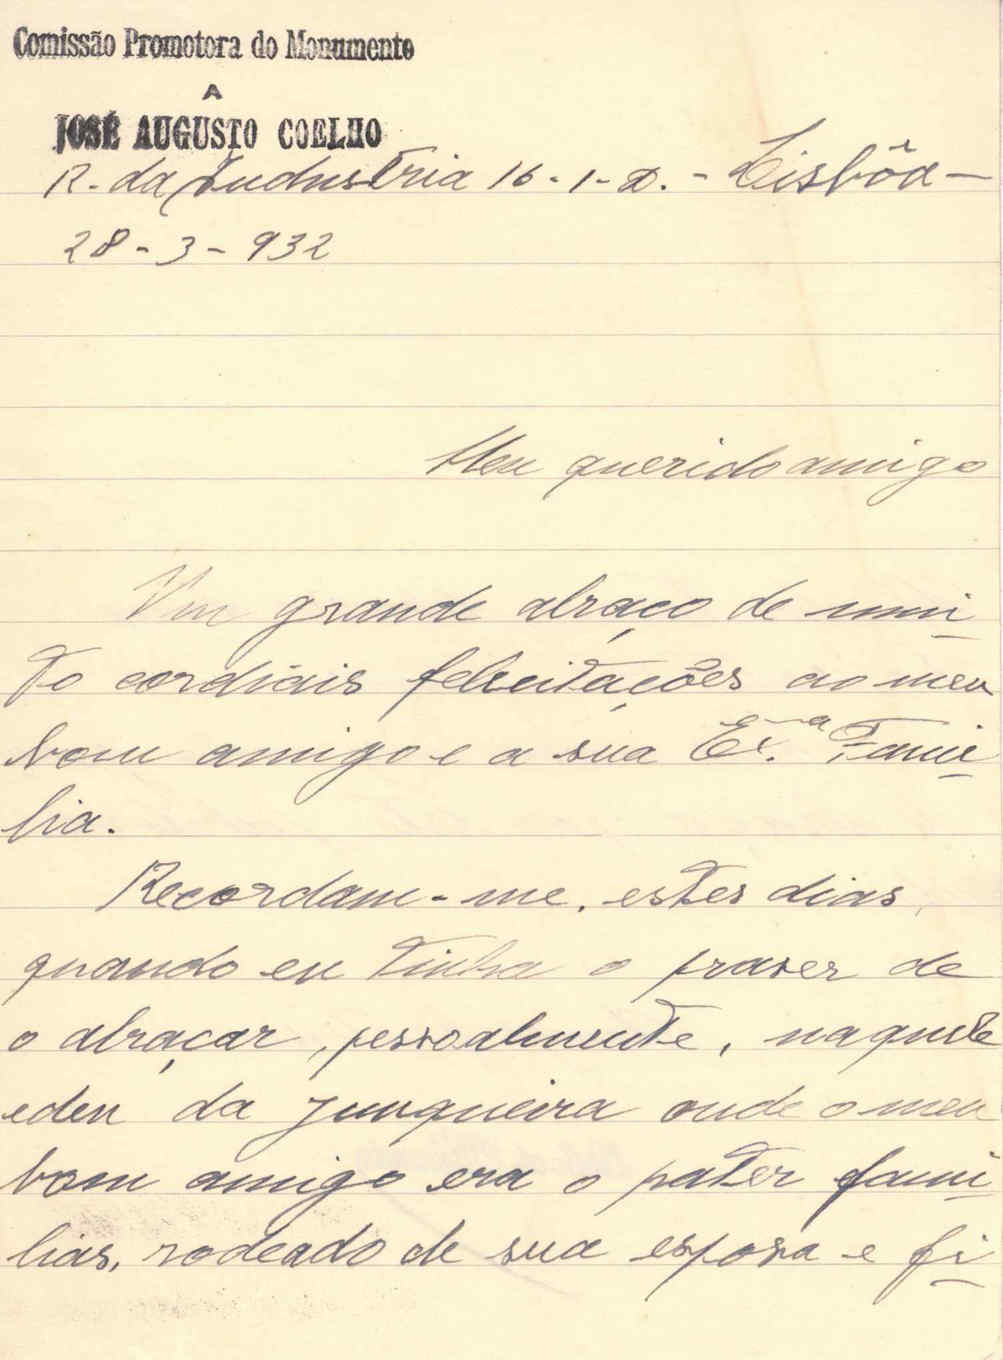 Comissão Promotora do Monumento
A
JOSÉ AUGUSTO COELHO
R. da Industria 16-1-D. - Lisbôa -
28-3-932
Meu querido amigo
Um grande abraço de mui-
to cordiais felicitações ao meu
bom amigo e a sua Ex.ª Fami-
lia.
Recordam-me, estes dias,
quando eu tinha o praser de
o abraçar, pessoalmente, naquele
eden da Junqueira onde o meu
bom amigo era o pater fami-
lias, rodeado de sua esposa e fi-